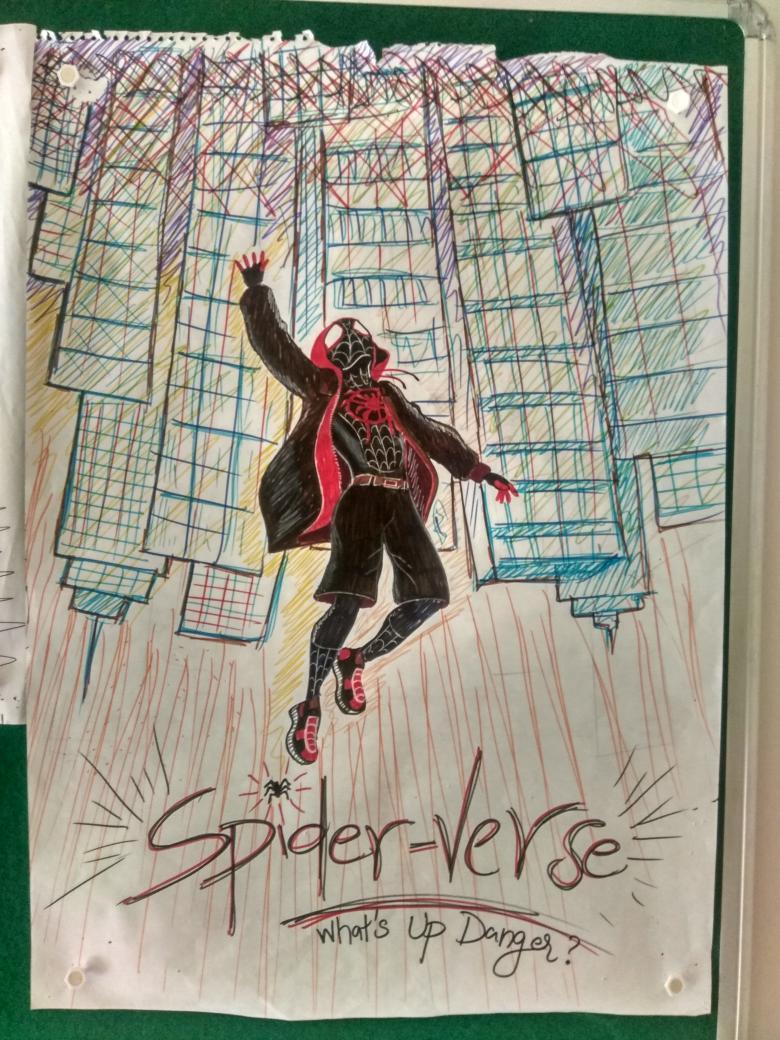 Spider-Verse
What's Up Danger?